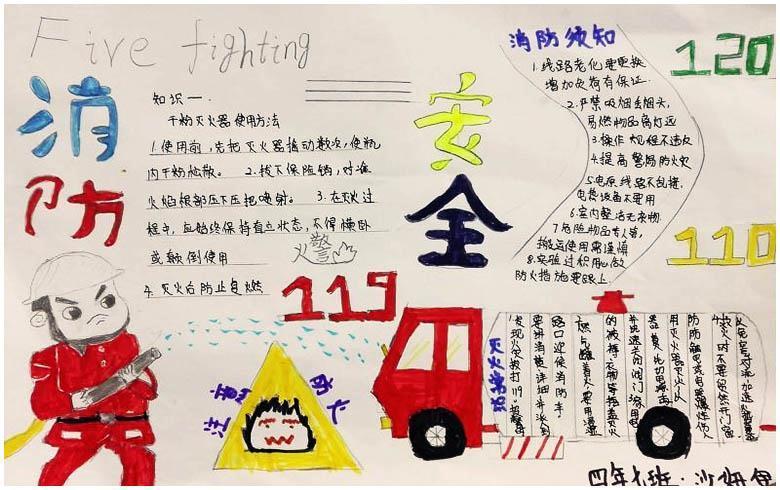 Five fighting
消防
安全
知识一.
干粉灭火器使用方法
1.使用前,先把灭火器摇动数次,使瓶
内干粉松散。2.拔下保险销,对准
火焰根部压下压把喷射。3.在灭火过
程中,应始终保持直立状态,不得横卧
或颠倒使用
4.灭火后防止复燃
火警
119
消防须知
1.线路老化要更换
增加负荷有保证.
2.严禁吸烟丢烟头,
易燃物品离灯远
3.操作规程不违反
4.提高警惕防火灾
5.电源线路不乱接,
电热设备不要用
6.室内整洁无杂物
7.危险物品专人管,
搬运使用需谨慎
8.实验过程用心做
防火措施要跟上
120
110
注意
灭火
1.发现火灾拨打119.
要讲清
路口迎候消防车.
燃气罐着火,要用浸湿
的被褥、衣物等捂盖灭火
并迅速关闭阀门.
器着火,先切断电
用灭火器灭火,
防触电或电器爆炸伤人
救火时不要贸然开门窗
以免空气对流加速
四年七班.